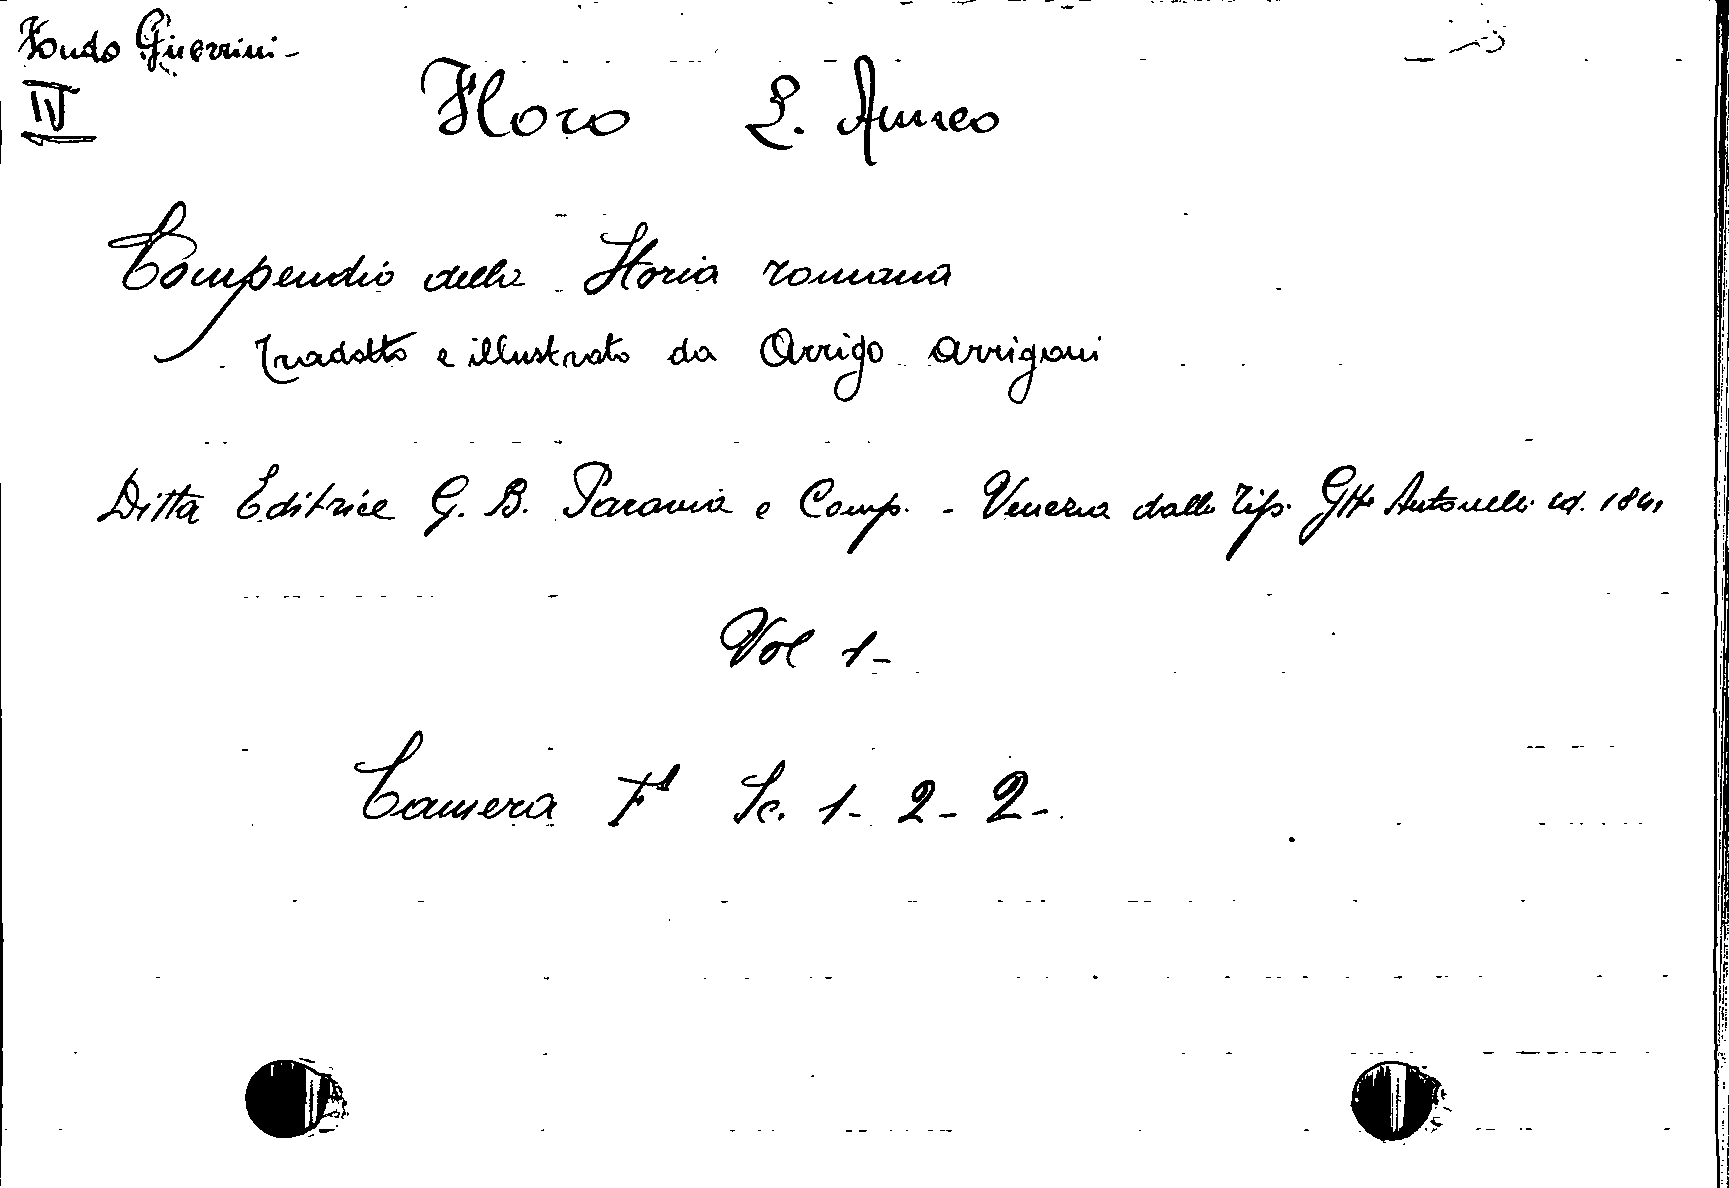 Fondo Guerrini -
IV
Floro L. Anneo
Compendio della Storia romana
tradotto e illustrato da Arrigo Arrigoni
Ditta Editrice G. B. Paravia e Comp. - Venezia dalla Tip. Antonelli ed. 1841
Vol 1-
Camera F¹ Sc. 1- 2- 2-